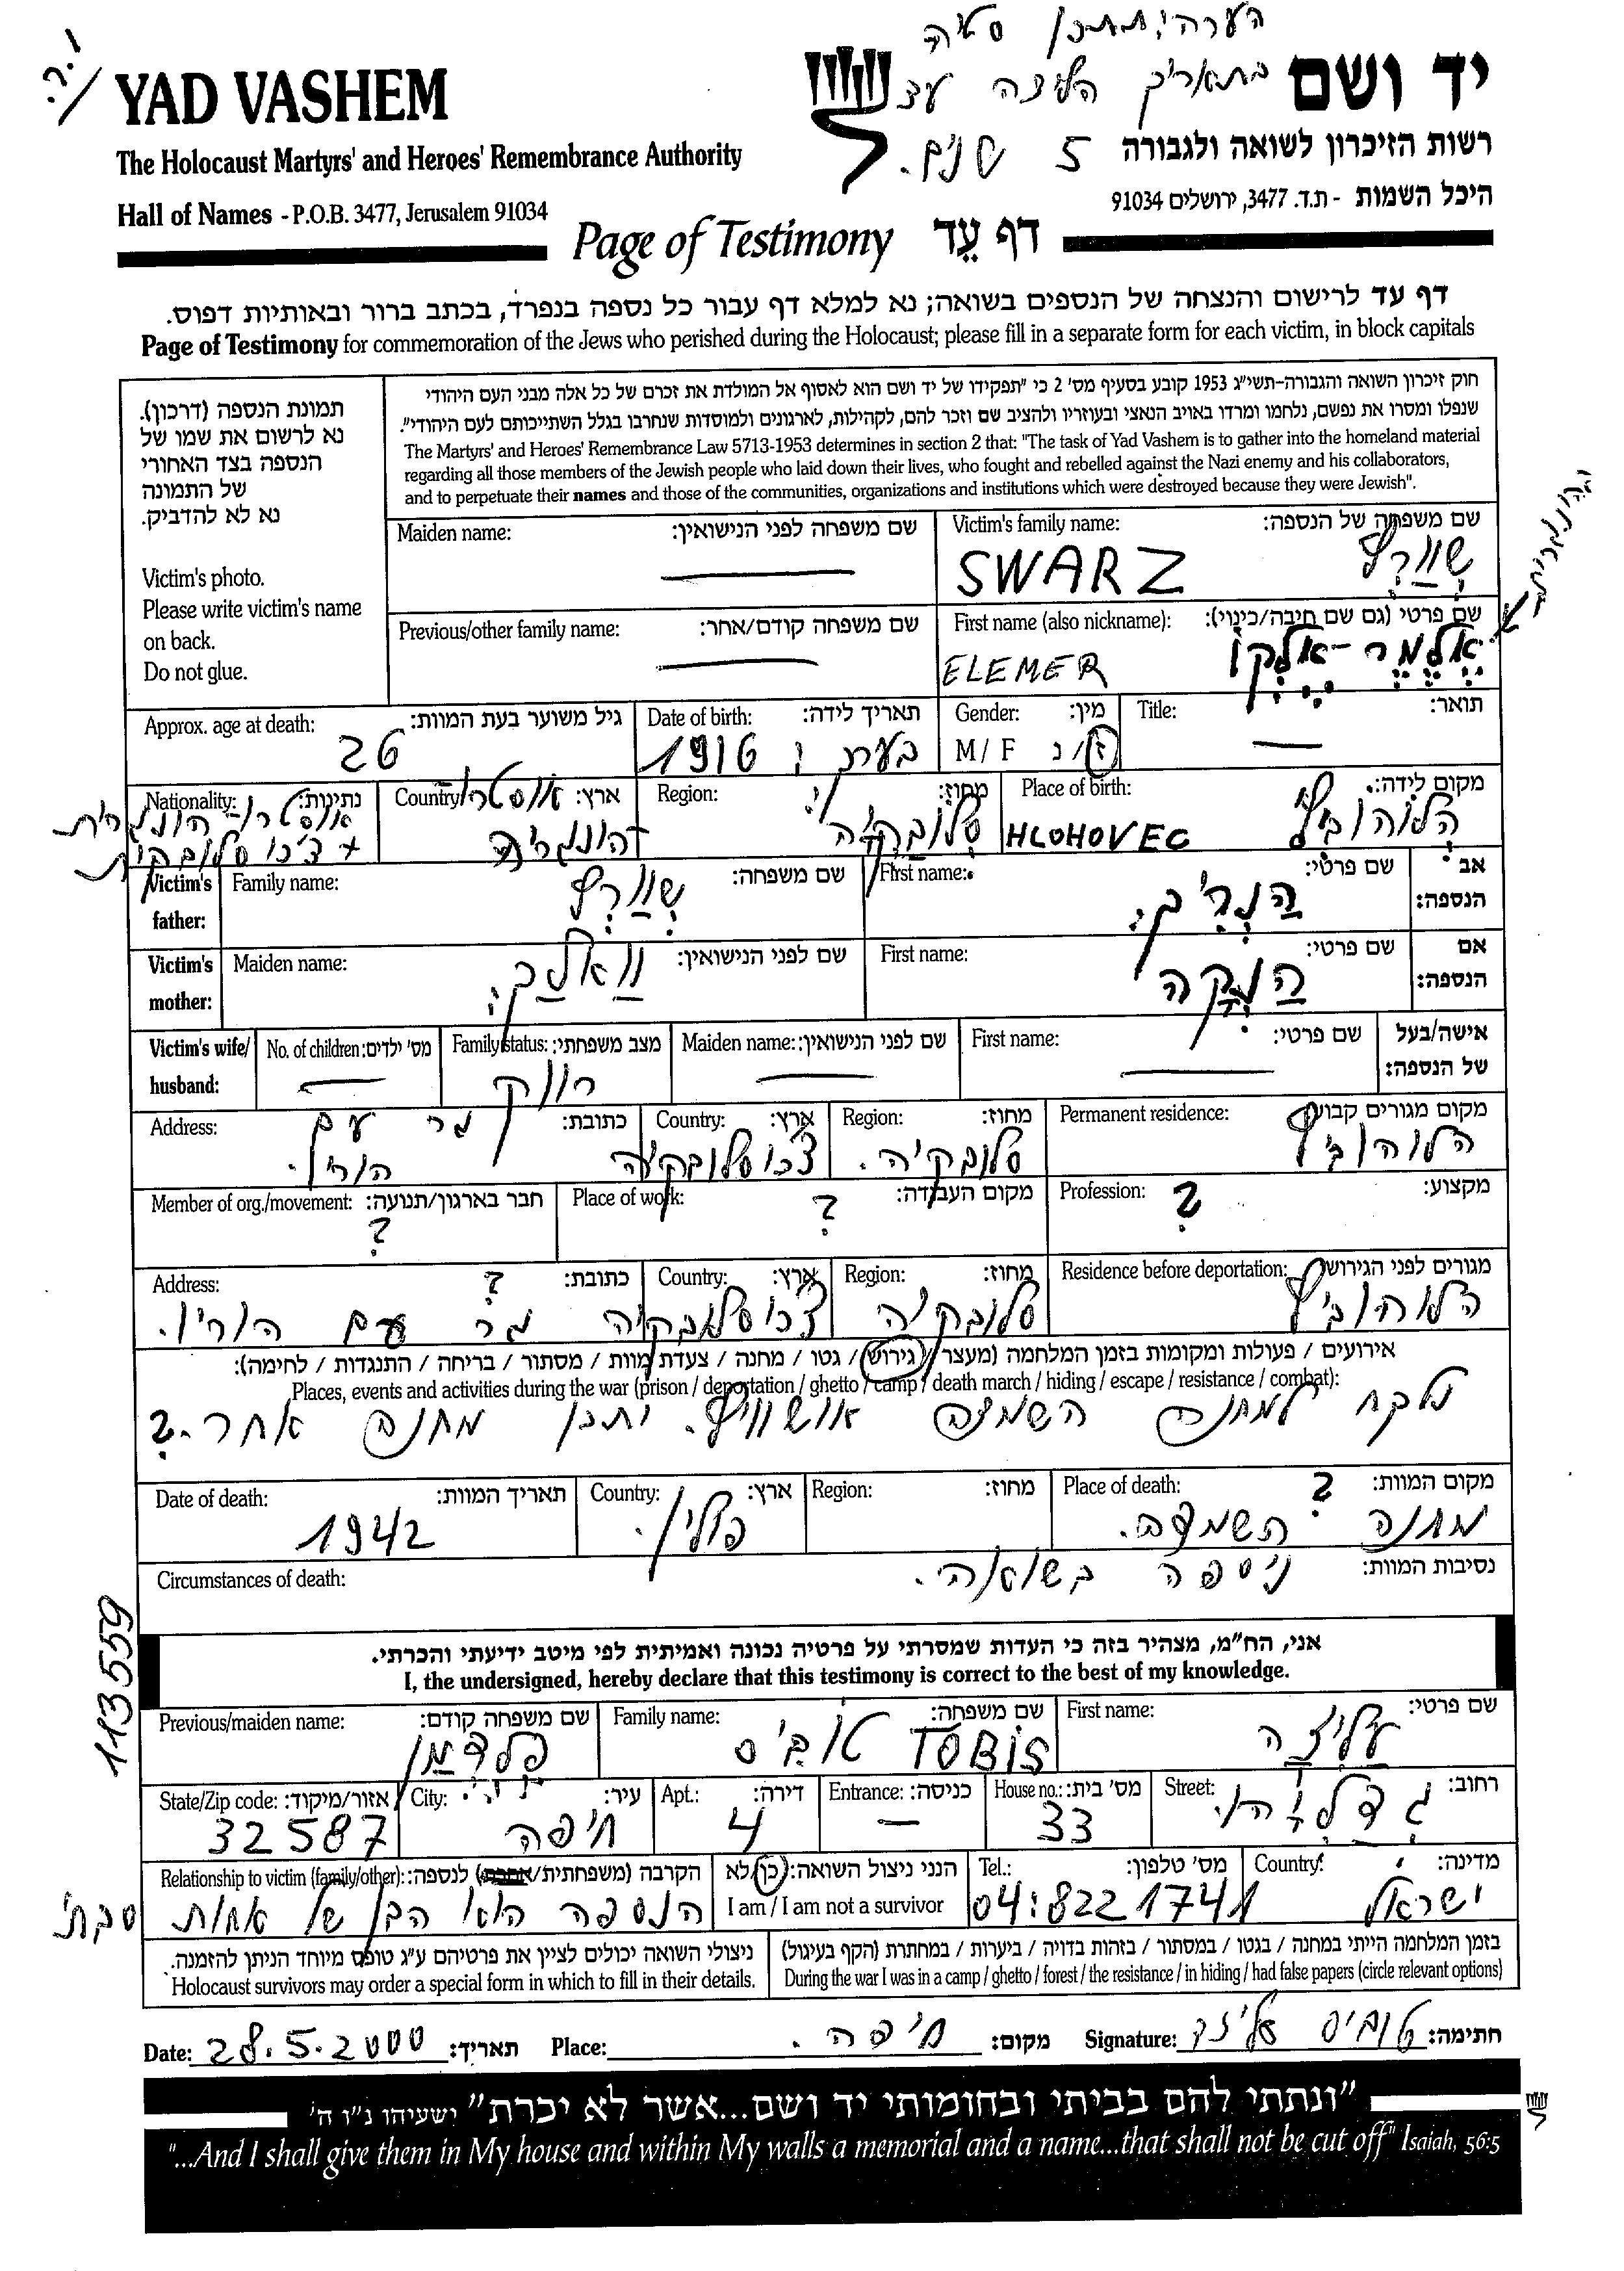 הערה: יתכן סטיה
בתאריך הלידה עד
5 שנים.
YAD VASHEM
יד ושם
The Holocaust Martyrs' and Heroes' Remembrance Authority
רשות הזיכרון לשואה ולגבורה
Hall of Names - P.O.B. 3477, Jerusalem 91034
היכל השמות - ת.ד. 3477, ירושלים 91034
Page of Testimony דף עֵד
דף עד לרישום והנצחה של הנספים בשואה; נא למלא דף עבור כל נספה בנפרד, בכתב ברור ובאותיות דפוס.
Page of Testimony for commemoration of the Jews who perished during the Holocaust; please fill in a separate form for each victim, in block capitals
תמונת הנספה (דרכון).
נא לרשום את שמו של
הנספה בצד האחורי
של התמונה
נא לא להדביק.
Victim's photo.
Please write victim's name
on back.
Do not glue.
חוק זיכרון השואה והגבורה-תשי"ג 1953 קובע בסעיף מס' 2 כי "תפקידו של יד ושם הוא לאסוף אל המולדת את זכרם של כל אלה מבני העם היהודי
שנפלו ומסרו את נפשם, נלחמו ומרדו באויב הנאצי ובעוזריו ולהציב שם וזכר להם, לקהילות, לארגונים ולמוסדות שנחרבו בגלל השתייכותם לעם היהודי".
The Martyrs' and Heroes' Remembrance Law 5713-1953 determines in section 2 that: "The task of Yad Vashem is to gather into the homeland material
regarding all those members of the Jewish people who laid down their lives, who fought and rebelled against the Nazi enemy and his collaborators,
and to perpetuate their names and those of the communities, organizations and institutions which were destroyed because they were Jewish".
Maiden name: שם משפחה לפני הנישואין: Victim's family name: שם משפחה של הנספה:
SWARZ שְוַורְץ
Previous/other family name: שם משפחה קודם/אחר: First name (also nickname): שם פרטי (גם שם חיבה/כינוי):
ELEMER אֶלֶמֶר-אֶלֶקוֹ
Approx. age at death: גיל משוער בעת המוות: Date of birth: תאריך לידה: Gender: מין: Title: תואר:
26 1916 בערך M / F ז/נ
Nationality: נתינות: Country: ארץ: Region: מחוז: Place of birth: מקום לידה:
אוסטרו-הונגרית אוסטרו סלובקיה HLOHOVEC הלוהוביץ
+ צ'כוסלובקית הונגריה
Victim's father: Family name: שם משפחה: First name: שם פרטי: אב הנספה:
שְוַורְץ הַנְרִיק
Victim's mother: Maiden name: שם לפני הנישואין: First name: שם פרטי: אם הנספה:
הַנְקָה
Victim's wife/ husband: No. of children: מס' ילדים: Family status: מצב משפחתי: Maiden name: שם לפני הנישואין: First name: שם פרטי: אישה/בעל של הנספה:
רווק
Address: כתובת: Country: ארץ: Region: מחוז: Permanent residence: מקום מגורים קבוע:
גר עם הוריו. צ'כוסלובקיה סלובקיה. הלוהוביץ
Member of org./movement: חבר בארגון/תנועה: Place of work: מקום העבודה: Profession: מקצוע:
? ? ?
Address: כתובת: Country: ארץ: Region: מחוז: Residence before deportation: מגורים לפני הגירוש:
? גר עם הוריו. צ'כוסלובקיה סלובקיה הלוהוביץ
אירועים / פעולות ומקומות בזמן המלחמה (מעצר / גירוש / גטו / מחנה / צעדת מוות / מסתור / בריחה / התנגדות / לחימה):
Places, events and activities during the war (prison / deportation / ghetto / camp / death march / hiding / escape / resistance / combat):
נלקח למחנה השמדה אושוויץ. יתכן מחנה אחר.?
Date of death: תאריך המוות: Country: ארץ: Region: מחוז: Place of death: מקום המוות:
1942 פולין. ? מחנה השמדה.
Circumstances of death: נסיבות המוות:
ניספה בשואה.
113559
אני, הח"מ, מצהיר בזה כי העדות שמסרתי על פרטיה נכונה ואמיתית לפי מיטב ידיעתי והכרתי.
I, the undersigned, hereby declare that this testimony is correct to the best of my knowledge.
Previous/maiden name: שם משפחה קודם: Family name: שם משפחה: First name: שם פרטי:
פלדמן טוביס TOBIS עליזה
State/Zip code: אזור/מיקוד: City: עיר: Apt.: דירה: Entrance: כניסה: House no.: מס' בית: Street: רחוב:
32587 חיפה 4 — 33 גדליהו.
Relationship to victim (family/other): הקרבה (משפחתית/אחרת) לנספה: הנני ניצול השואה: כן/לא Tel.: מס' טלפון: Country: מדינה:
הנספה הוא הבן של אחות סבתי I am / I am not a survivor 04:8221741 ישראל
ניצולי השואה יכולים לציין את פרטיהם ע"ג טופס מיוחד הניתן להזמנה. בזמן המלחמה הייתי במחנה / בגטו / במסתור / בזהות בדויה / ביערות / במחתרת (הקף בעיגול)
Holocaust survivors may order a special form in which to fill in their details. During the war I was in a camp / ghetto / forest / the resistance / in hiding / had false papers (circle relevant options)
Date: 28.5.2000 תאריך: Place: חיפה. מקום: Signature: טוביס עליזה חתימה:
"ונתתי להם בביתי ובחומותי יד ושם...אשר לא יכרת" ישעיהו נ"ו ה'
"...And I shall give them in My house and within My walls a memorial and a name...that shall not be cut off" Isaiah, 56:5